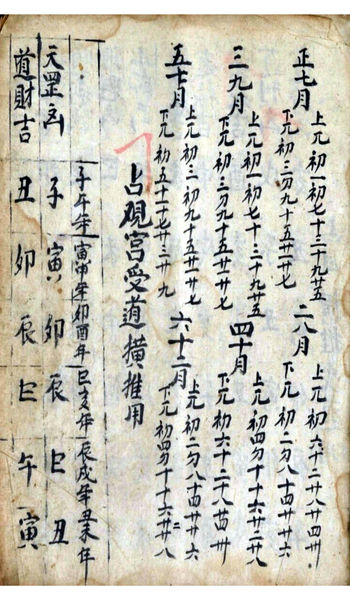 正七月
上兀初一初七十三十九廿五
下兀初三初九十五廿一廿七
二八月
上兀初六十二十八廿四卅
下兀初二初八十四廿廿六
三九月
上兀初一初七十三十九廿五
下兀初三初九十五廿一廿七
四十月
上兀初四初十十六廿二廿八
下兀初六十二十八廿四卅
五十一月
上兀初三初九十五廿一廿七
下兀初五十一十七廿三廿九
六十二月
上兀初二初八十四廿廿六
下兀初四初十十六廿二廿八
占硯宮受道橫推用
子午年 寅申年 卯酉年 巳亥年 辰戌年 丑未年
天罡凶 子 寅 卯 辰 巳 丑
道財吉 丑 卯 辰 巳 午 寅